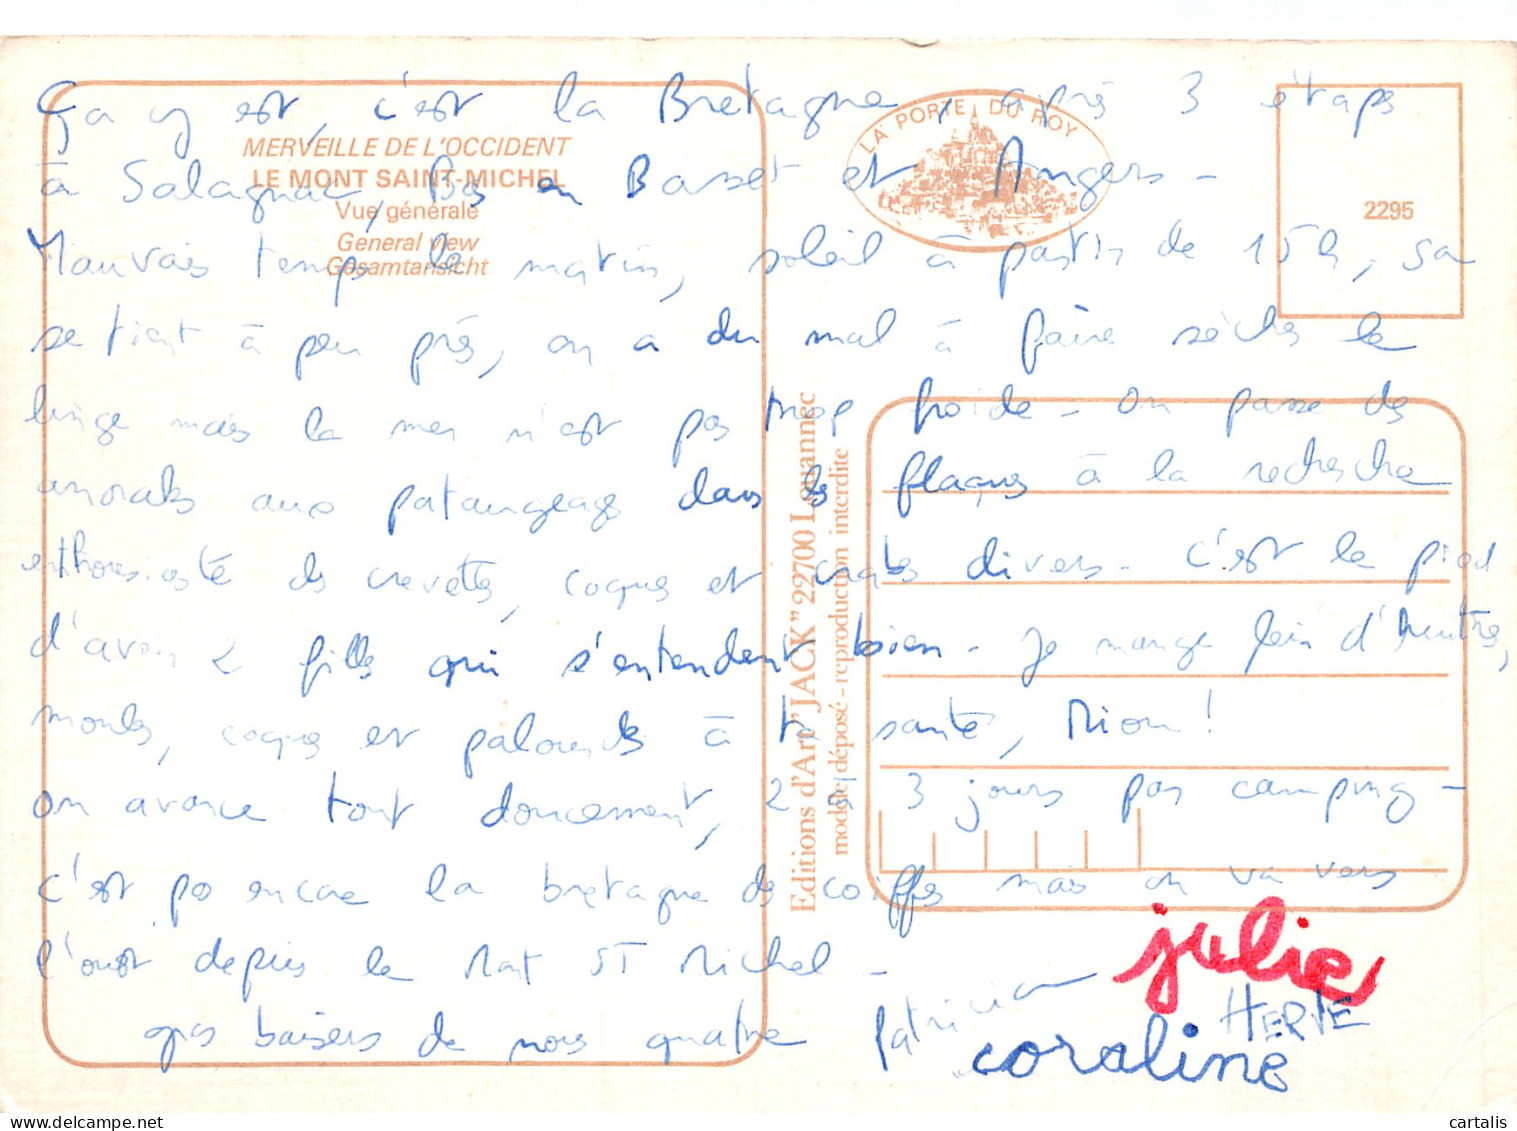 Ça y est, c'est la Bretagne, après 3 étaps
à Salagnac, Bas en Basset et Angers -
Mauvais temps le matin, soleil à partir de 15h, sa
se tient à peu près, on a du mal à faire sècher le
linge mais la mer n'est pas trop froide - On passe des
anoraks aux pataugeages dans les flaques à la recherche
enthousiaste des crevettes, coques et crabes divers - C'est le pied
d'avoir 2 filles qui s'entendent bien - Je mange plein d'huitres,
moules, coques et palourdes à ta santé, Mion !
on avance tout doucement, 2 ou 3 jours par camping -
c'est pas encore la bretagne des coiffes mais on va vers
l'ouest depuis le Mont ST Michel -
gros baisers de nous quatre
Patricia
julie
HERVE
coraline
MERVEILLE DE L'OCCIDENT
LE MONT SAINT-MICHEL
Vue générale
General view
Gesamtansicht
LA PORTE DU ROY
2295
Editions d'Art "JACK" 22700 Louannec
modèle déposé - reproduction interdite
cartalis